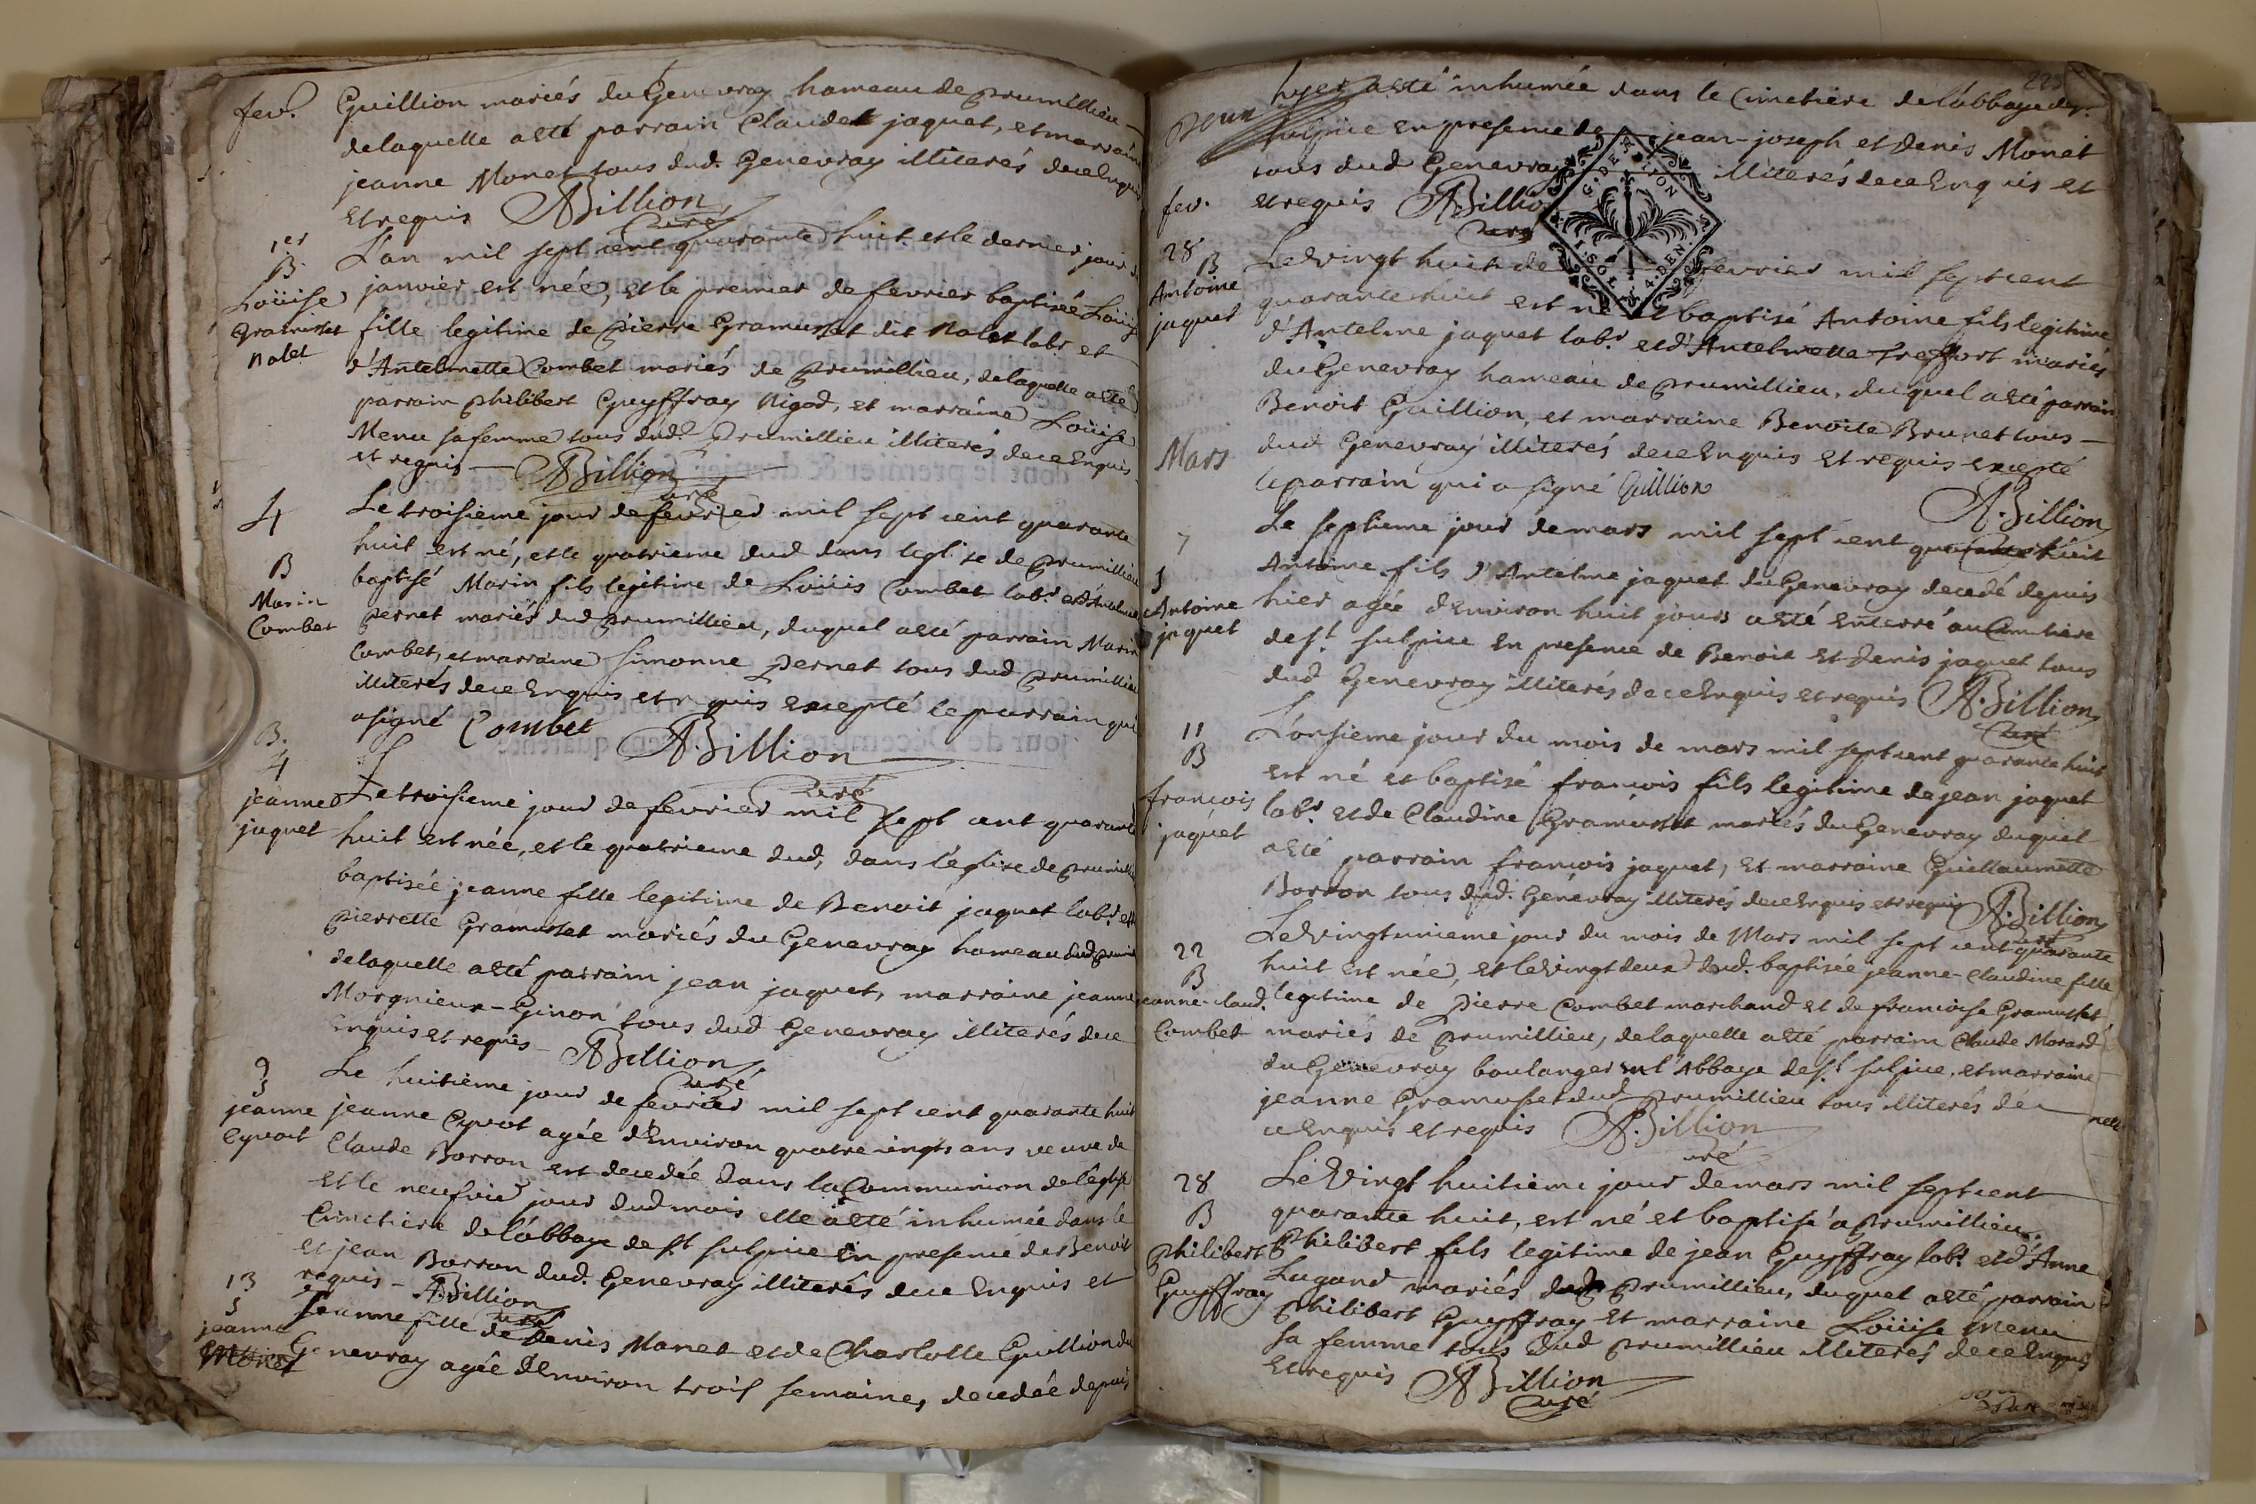 fev.r
Guillion mariés du Genevray hameau de prumillieu
delaquelle a été parrain Claude jaquet, et marraine
jeanne Monet tous dud. Genevray illiterés de ce Enquis
et requis ABillion
Curé
1er
B
Loüise
gramusset
nalet
L'an mil sept cent quarante huit et le dernier jour de
janvier est née, et le premier de fevrier baptisée Loüise
fille legitime de pierre Gramusset dit Nalet labr. et
d'Antelmette Combet mariés de prumillieu, delaquelle a été
parrain philibert Guyffray Rigod, et marraine Loüise
Menu sa femme tous dud.t prumillieu illiterés de ce Enquis
et requis ABillion
curé
4
B
Marin
Combet
Le troisieme jour de fevrier mil sept cent quarante
huit est né, et le quatrieme dud dans leglise de prumillieu
baptisé Marin fils legitime de Loüis Combet labr.
pernet mariés dud prumillieu, duquel a été parrain Marin
Combet, et marraine Simonne pernet tous dud prumillieu
illiterés de ce Enquis et requis excepté le parrain qui
a signé Combet ABillion
curé
B.
4
jeanne
jaquet
Le troisieme jour de fevrier mil sept cent quarante
huit est née, et le quatrieme dud, dans l'église de prumillieu
baptisée jeanne fille legitime de Benoit jaquet labr. et
pierrette Gramusset mariés du Genevray hameau dud
delaquelle a été parrain jean jaquet, marraine jeanne
Morgnieux-Ginon tous dud Genevray illiterés de ce
Enquis et requis ABillion
Curé
9
S
jeanne
Cyvoct
Le huitième jour de fevrier mil sept cent quarante huit
jeanne Cyvot agée d'Environ quatre vingts ans veuve de
Claude Borron est decedée dans la Communion de l'église
et le neufvie jour dud mois elle a été inhumée dans le
Cimetiere de l'abbaye de st sulpice En presence de Benoit
et jean Borron dud. Genevray illiterés de ce Enquis et
requis - ABillion
curé
13
S
jeanne
Monet
Jeanne fille de Denis Monet et de Charlotte Guillion du
Genevray agée d'Environ trois semaines, decedée depuis
223
hyer a été inhumée dans le Cimetière de l'abbaye de st.
sulpice En presence de jean-joseph et Denis Monet
tous dud Genevray illiterés de ce Enquis et
et requis ABillion
Curé
G. DE LYON
I. SOL. 4. DEN.
fev.
28
B
Antoine
jaquet
Le Vingt huit de fevrier mil sept cent
quarante huit est né et baptisé Antoine fils legitime
d'Antelme jaquet labr. et d'Antelmette treffort mariés
du Genevray hameau de prumillieu, duquel a été parrain
Benoit Guillion, et marraine Benoite Brunet tous
dud Genevray illiterés de ce Enquis et requis excepté
le parrain qui a signé Guillion
A.Billion
Curé
Mars
7
S
Antoine
jaquet
Le septieme jour de mars mil sept cent quarante huit
Antoine fils d'Antelme jaquet du Genevray decedé depuis
hier agée d'Environ huit jours a été enterré au Cimetiere
de st. sulpice en presence de Benoit et Denis jaquet tous
dud Genevray illiterés de ce Enquis et requis A.Billion
Curé
11
B
francois
jaquet
L'onsieme jour du mois de mars mil sept cent quarante huit
est né et baptisé francois fils legitime de jean jaquet
labr. et de Claudine Gramusset mariés du Genevray duquel
a été parrain francois jaquet, et marraine Guillaumette
Borron tous dud. Genevray illiterés de ce Enquis et requis A.Billion
curé
22
B
jeanne-claud.
Combet
Le Vingtunieme jour du mois de Mars mil sept cent quarante
huit est née, et le vingt deux dud. baptisée jeanne-Claudine fille
legitime de pierre Combet marchand et de francoise Gramusset
mariés de prumillieu, delaquelle a été parrain Claude Morard
du Genevray boulanger en l'Abbaye de st. sulpice, et marraine
jeanne Gramusset dud prumillieu tous illiterés de
ce Enquis et requis A.Billion
curé
28
B
philibert
Guyffray
Le Vingt huitième jour de mars mil sept cent
quarante huit, est né et baptisé a prumillieu
philibert fils legitime de jean Guyffray labr. et d'Anne
Lugand mariés dud prumillieu, duquel a été parrain
philibert Guyffray et marraine Loüise Menu
sa femme tous dud prumillieu illiterés de ce Enquis
et requis ABillion
Curé